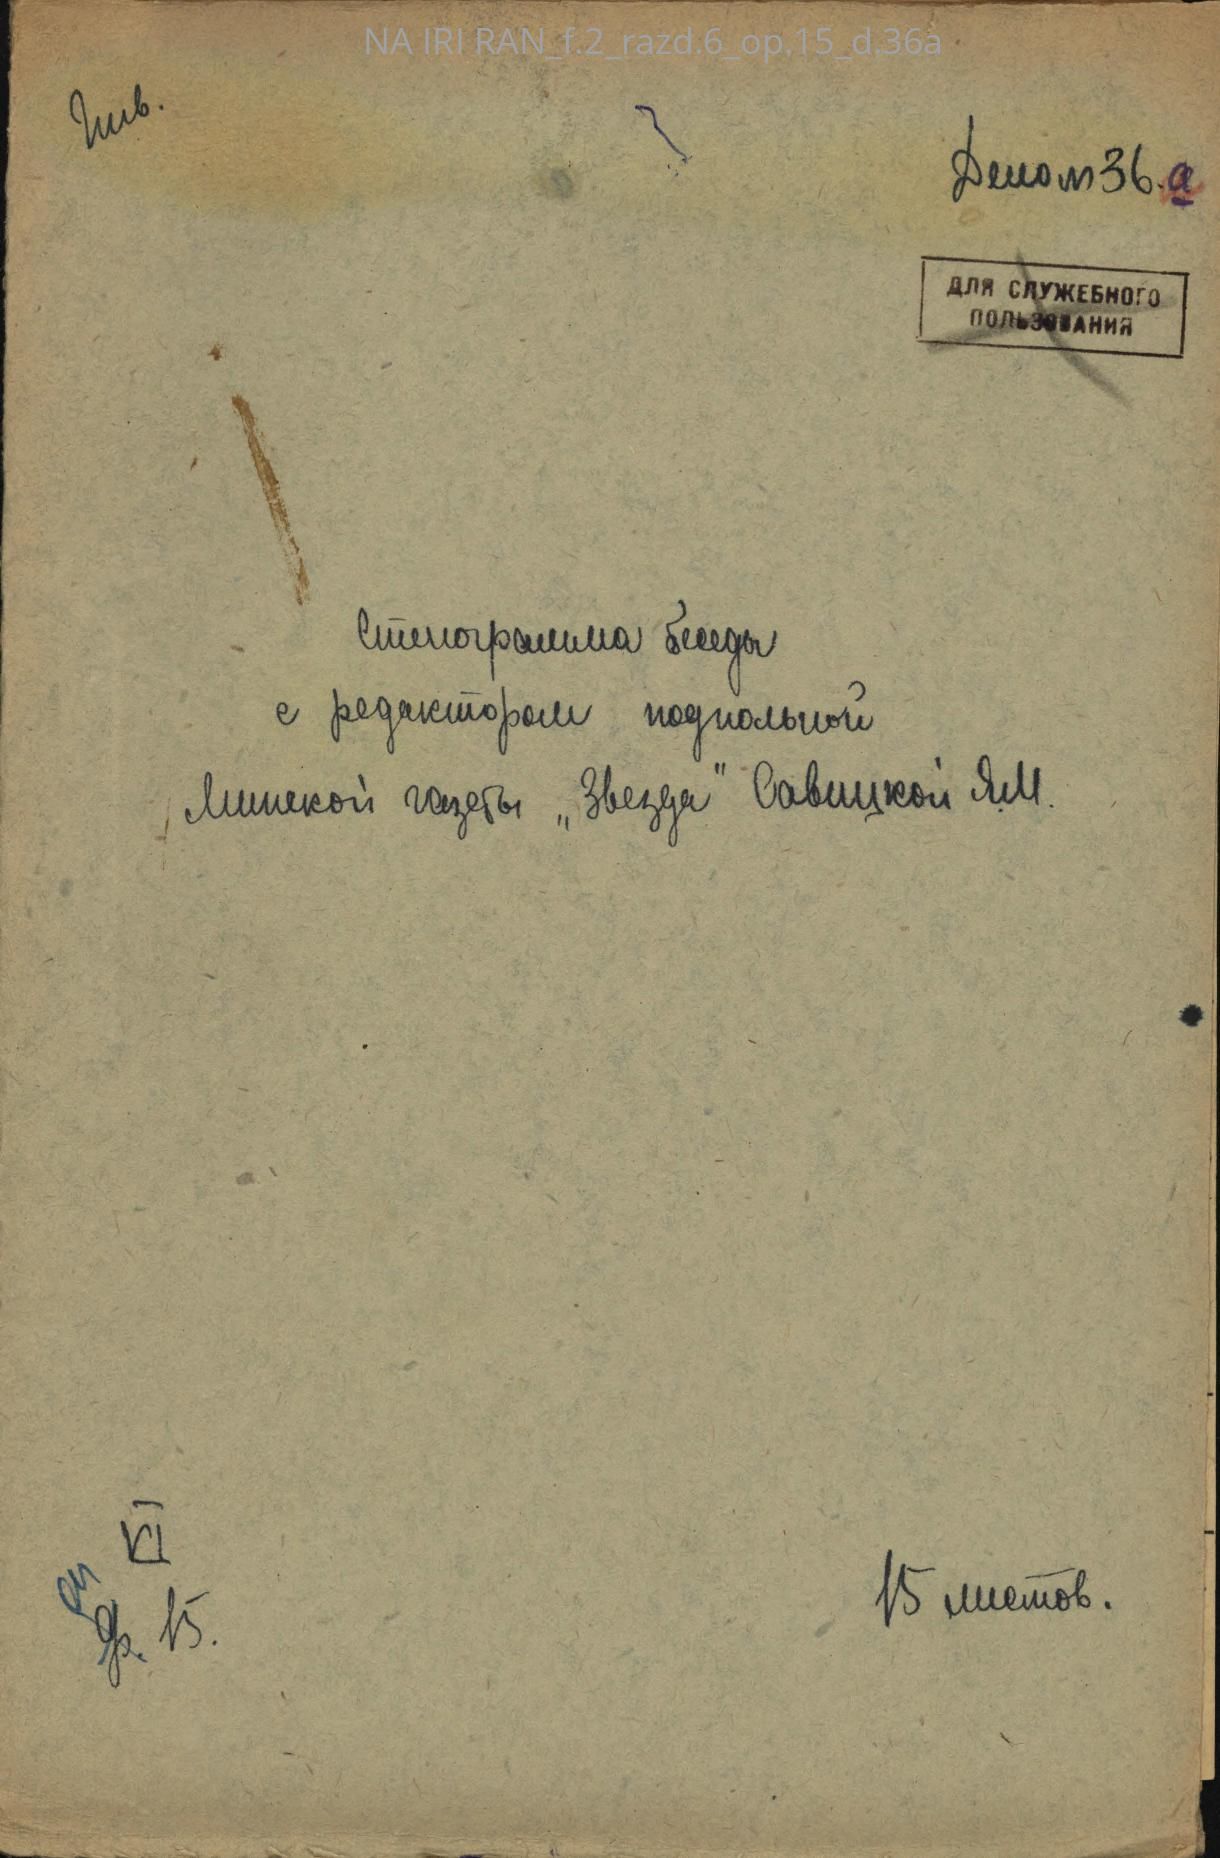 NA IRI RAN_f.2_razd.6_op.15_d.36a
Дело №36.а
ДЛЯ СЛУЖЕБНОГО
ПОЛЬЗОВАНИЯ
Стенограмма беседы
с редактором подпольной
Минской газеты „Звезда" Савицкой Я.М.
VI
оп
ф. 15.
15 листов.